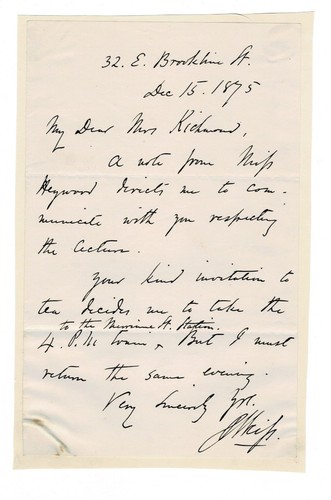 32. E. Brookline St.
Dec 15. 1875
My Dear Mrs Richmond,
A note from Miss
Heywood directs me to com-
municate with you respecting
the lecture.
Your kind invitation to
tea decides me to take the
to the Merrimac St. Station.
4. P.M. train, But I must
return the same evening.
Very Sincerely Yrs.